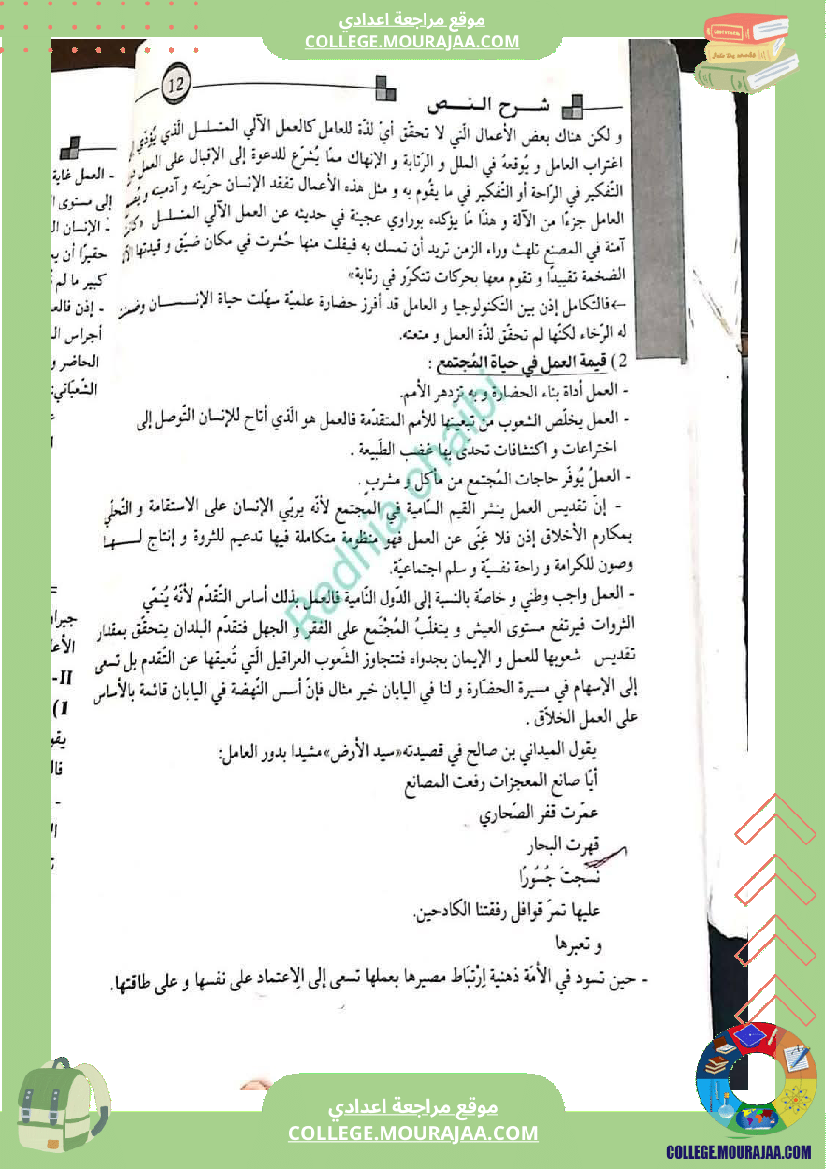 موقع مراجعة اعدادي
COLLEGE.MOURAJAA.COM
12
شرح النص
و لكن هناك بعض الأعمال الّتي لا تحقّق أيّ لذّة للعامل كالعمل الآلي المتسلسل الّذي يُؤذي إلى
اغتراب العامل و يُوقعهُ في الملل و الرّتابة و الإنهاك ممّا يُشرّع للدعوة إلى الإقبال على العمل دون
التّفكير في الرّاحة أو التّفكير في ما يقُوم به و مثل هذه الأعمال تفقد الإنسان حرّيته و آدميته و
العامل جزءًا من الآلة و هذا مَا يؤكده بوراوي عجينة في حديثه عن العمل الآلي المتسلسل «كانت
آمنة في المصنع تلهث وراء الزمن تريد أن تمسك به فيفلت منها حُشرت في مكان ضيّق و قيدتها
الضخمة تقييدًا و تقوم معها بحركات تتكرّر في رتابة»
←فالتّكامل إذن بين التّكنولوجيا و العامل قد أفرز حضارة علميّة سهّلت حياة الإنسان وضمنت
له الرّخاء لكنّها لم تحقّق لذّة العمل و متعته.
2) قيمة العمل في حياة المُجتمع :
- العمل أداة بناء الحضارة و به تزدهر الأمم.
- العمل يخلّص الشعوب من تبعيتها للأمم المتقدّمة فالعمل هو الّذي أتاح للإنسان التّوصل إلى
اختراعات و اكتشافات تحدى بها غضب الطّبيعة .
- العملُ يُوفّر حاجات المُجتمع من مأكل و مشرب.
- إنّ تقديس العمل ينشر القيم السّامية في المجتمع لأنّه يربّي الإنسان على الاستقامة و التّحلّي
بمكارم الأخلاق إذن فلا غِنًى عن العمل فهو منظومة متكاملة فيها تدعيم للثروة و إنتاج لـــها
وصون للكرامة و راحة نفسيّة و سلم اجتماعيّة.
- العمل واجب وطني و خاصّة بالنسبة إلى الدّول النّامية فالعمل بذلك أساس التّقدّم لأنّهُ يُنمّي
الثروات فيرتفع مستوى العيش و يتغلّبُ المُجْتَمع على الفقر و الجهل فتقدّم البلدان يتحقّق بمقدار
تقديس شعوبها للعمل و الإيمان بجدواه فتتجاوز الشّعوب العراقيل الّتي تُعيقها عن التّقدم بل تسعى
إلى الإسهام في مسيرة الحضارة و لنا في اليابان خير مثال فإنّ أسس النّهضة في اليابان قائمة بالأساس
على العمل الخلاّق .
يقول الميداني بن صالح في قصيدته«سيد الأرض»مشيدا بدور العامل:
أيّا صانع المعجزات رفعت المصانع
عمّرت قفر الصّحاري
قهرت البحار
نسجتَ جُسُورًا
عليها تمرّ قوافل رفقتنا الكادحين.
و تعبرها
- حين تسود في الأمّة ذهنية اِرْتبَاط مصيرها بعملها تسعى إلى الاِعتماد على نفسها و على طاقتها.
- العمل غاية
إلى مستوى
- الإنسان
حقيرًا أن
كبير ما لم
- إذن
أجراس
الحاضر و
الشّعبّاني:
جبران
II-
1)
Radhia chaibi
موقع مراجعة اعدادي
COLLEGE.MOURAJAA.COM
COLLEGE.MOURAJAA.COM